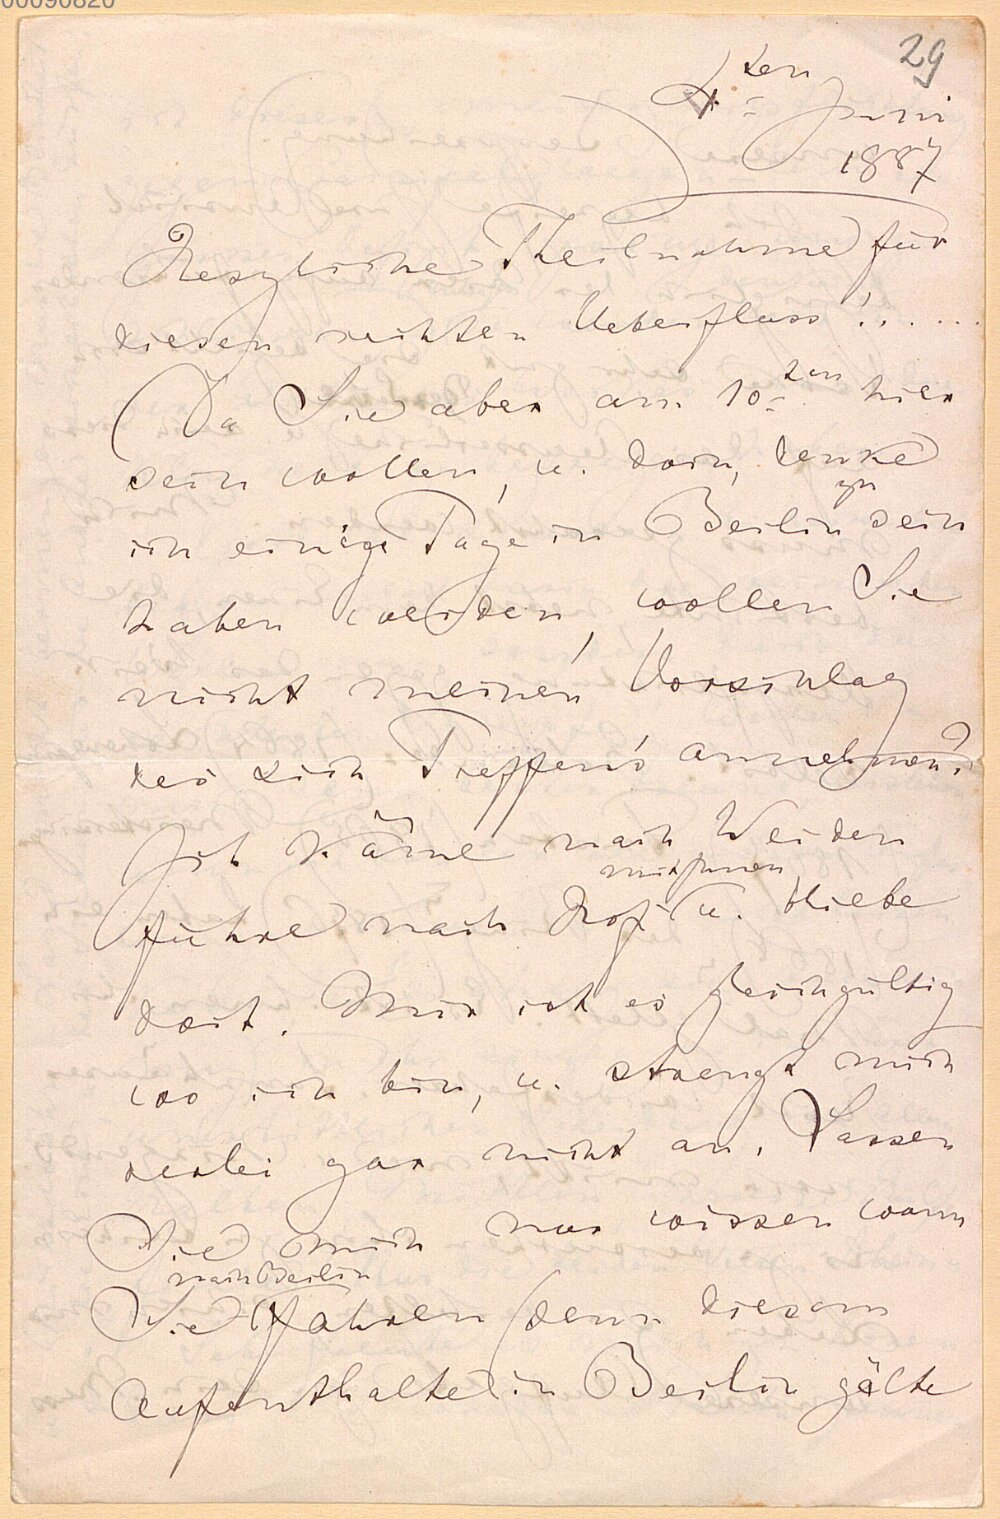 00090820
29
4ten Juni
1887
Herzliche Theilnahme für
diesen rechten Ueberfluss!.....
Da Sie aber am 10ten hier
sein wollen, u. dann, denke
ich einige Tage in Berlin zu sein
haben werden, wollen Sie
nicht meinen Vorschlag
des sich Treffen's annehmen?
Ich käme nach Weiden
führe mit Ihnen nach Hof u. bliebe
dort. Mir ist es gleichgültig
wo ich bin, u. strengt mich
derlei gar nicht an. Lassen
Sie mich nur wissen wann
Sie nach Berlin fahren (denn diesem
Aufenthalte in Berlin gälte